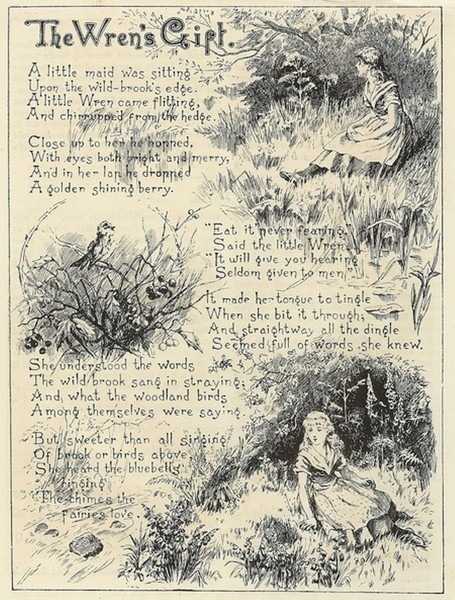 The Wren's Gift.
A little maid was sitting
Upon the wild-brook's edge.
A little Wren came flitting,
And chirruped from the hedge.
Close up to her he hopped,
With eyes both bright and merry,
And in her lap he dropped
A golden shining berry.
"Eat it never fearing,"
Said the little Wren,
"It will give you hearing
Seldom given to men."
It made her tongue to tingle
When she bit it through;
And straightway all the dingle
Seemed full of words she knew.
She understood the words
The wild brook sang in straying;
And, what the woodland birds
Among themselves were saying.
But sweeter than all singing
Of brook or birds above,
She heard the bluebells
ringing
The chimes the
fairies love.